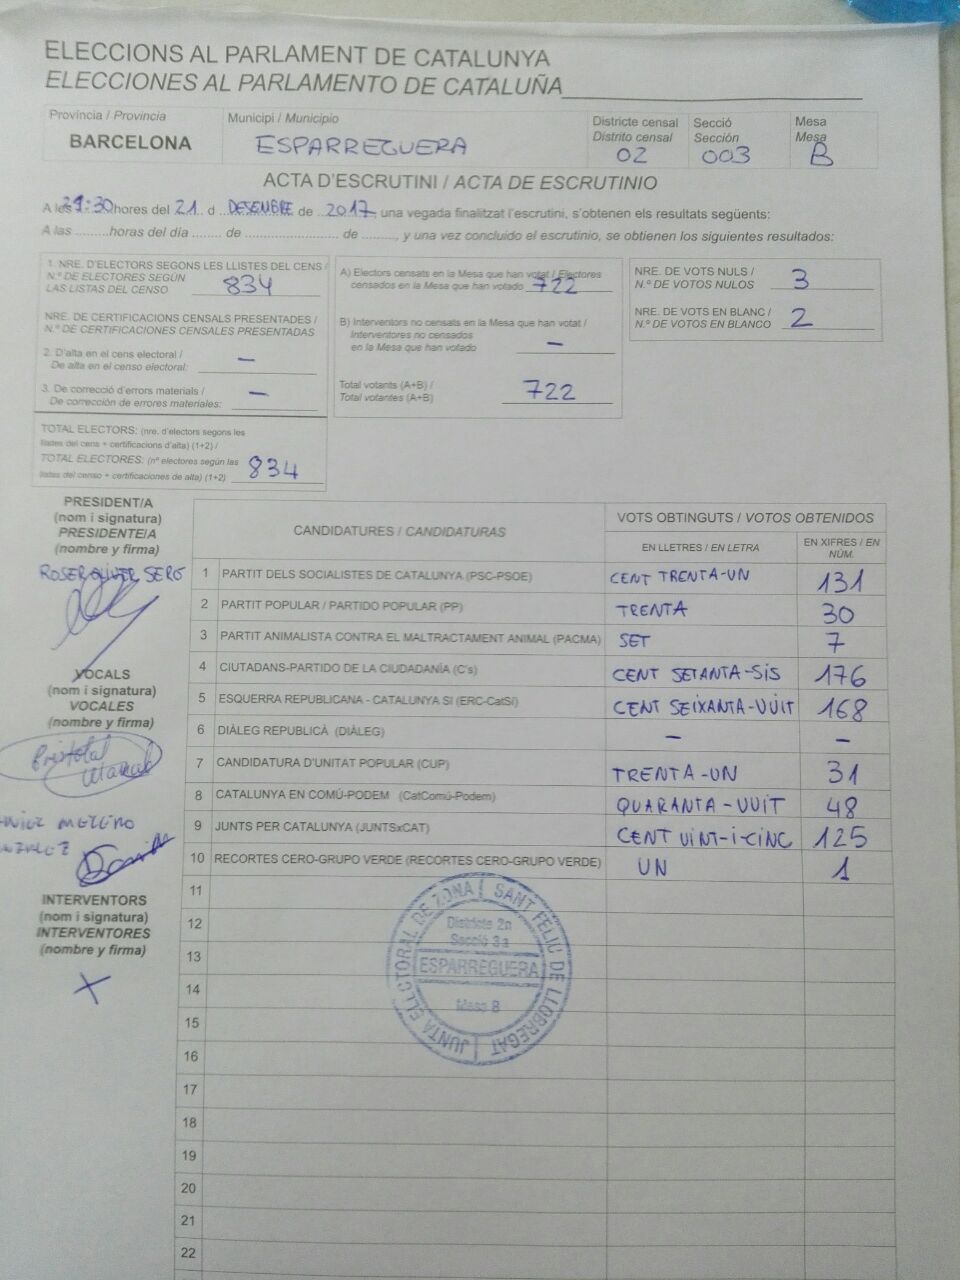 ELECCIONS AL PARLAMENT DE CATALUNYA
ELECCIONES AL PARLAMENTO DE CATALUÑA
Província / Provincia
BARCELONA
Municipi / Municipio
ESPARREGUERA
Districte censal
Distrito censal
02
Secció
Sección
003
Mesa
Mesa
B
ACTA D'ESCRUTINI / ACTA DE ESCRUTINIO
A les 21:30 hores del 21 d DESEMBRE de 2017, una vegada finalitzat l'escrutini, s'obtenen els resultats següents:
A las ......... horas del día ........ de ......................... de ........., y una vez concluido el escrutinio, se obtienen los siguientes resultados:
1. NRE. D'ELECTORS SEGONS LES LLISTES DEL CENS /
N.º DE ELECTORES SEGÚN
LAS LISTAS DEL CENSO 834
NRE. DE CERTIFICACIONS CENSALS PRESENTADES /
N.º DE CERTIFICACIONES CENSALES PRESENTADAS
2. D'alta en el cens electoral /
De alta en el censo electoral: –
3. De correcció d'errors materials /
De corrección de errores materiales: –
TOTAL ELECTORS: (nre. d'electors segons les
llistes del cens + certificacions d'alta) (1+2) /
TOTAL ELECTORES: (nº electores según las
listas del censo + certificaciones de alta) (1+2) 834
A) Electors censats en la Mesa que han votat / Electores
censados en la Mesa que han votado 722
B) Interventors no censats en la Mesa que han votat /
Interventores no censados
en la Mesa que han votado –
Total votants (A+B) /
Total votantes (A+B) 722
NRE. DE VOTS NULS /
N.º DE VOTOS NULOS 3
NRE. DE VOTS EN BLANC /
N.º DE VOTOS EN BLANCO 2
PRESIDENT/A
(nom i signatura)
PRESIDENTE/A
(nombre y firma)
ROSER OLIVER SERÓ
VOCALS
(nom i signatura)
VOCALES
(nombre y firma)
MORENO
INTERVENTORS
(nom i signatura)
INTERVENTORES
(nombre y firma)
CANDIDATURES / CANDIDATURAS
VOTS OBTINGUTS / VOTOS OBTENIDOS
EN LLETRES / EN LETRA
EN XIFRES / EN NÚM.
1 PARTIT DELS SOCIALISTES DE CATALUNYA (PSC-PSOE) CENT TRENTA-UN 131
2 PARTIT POPULAR / PARTIDO POPULAR (PP) TRENTA 30
3 PARTIT ANIMALISTA CONTRA EL MALTRACTAMENT ANIMAL (PACMA) SET 7
4 CIUTADANS-PARTIDO DE LA CIUDADANÍA (C's) CENT SETANTA-SIS 176
5 ESQUERRA REPUBLICANA - CATALUNYA SI (ERC-CatSí) CENT SEIXANTA-VUIT 168
6 DIÀLEG REPUBLICÀ (DIÀLEG) – –
7 CANDIDATURA D'UNITAT POPULAR (CUP) TRENTA-UN 31
8 CATALUNYA EN COMÚ-PODEM (CatComú-Podem) QUARANTA-VUIT 48
9 JUNTS PER CATALUNYA (JUNTSxCAT) CENT VINT-I-CINC 125
10 RECORTES CERO-GRUPO VERDE (RECORTES CERO-GRUPO VERDE) UN 1
11
12
13
14
15
16
17
18
19
20
21
22
JUNTA ELECTORAL DE ZONA | SANT FELIC DE LLOBREGAT |
Districte 2n
Secció 3a
ESPARREGUERA
Mesa B